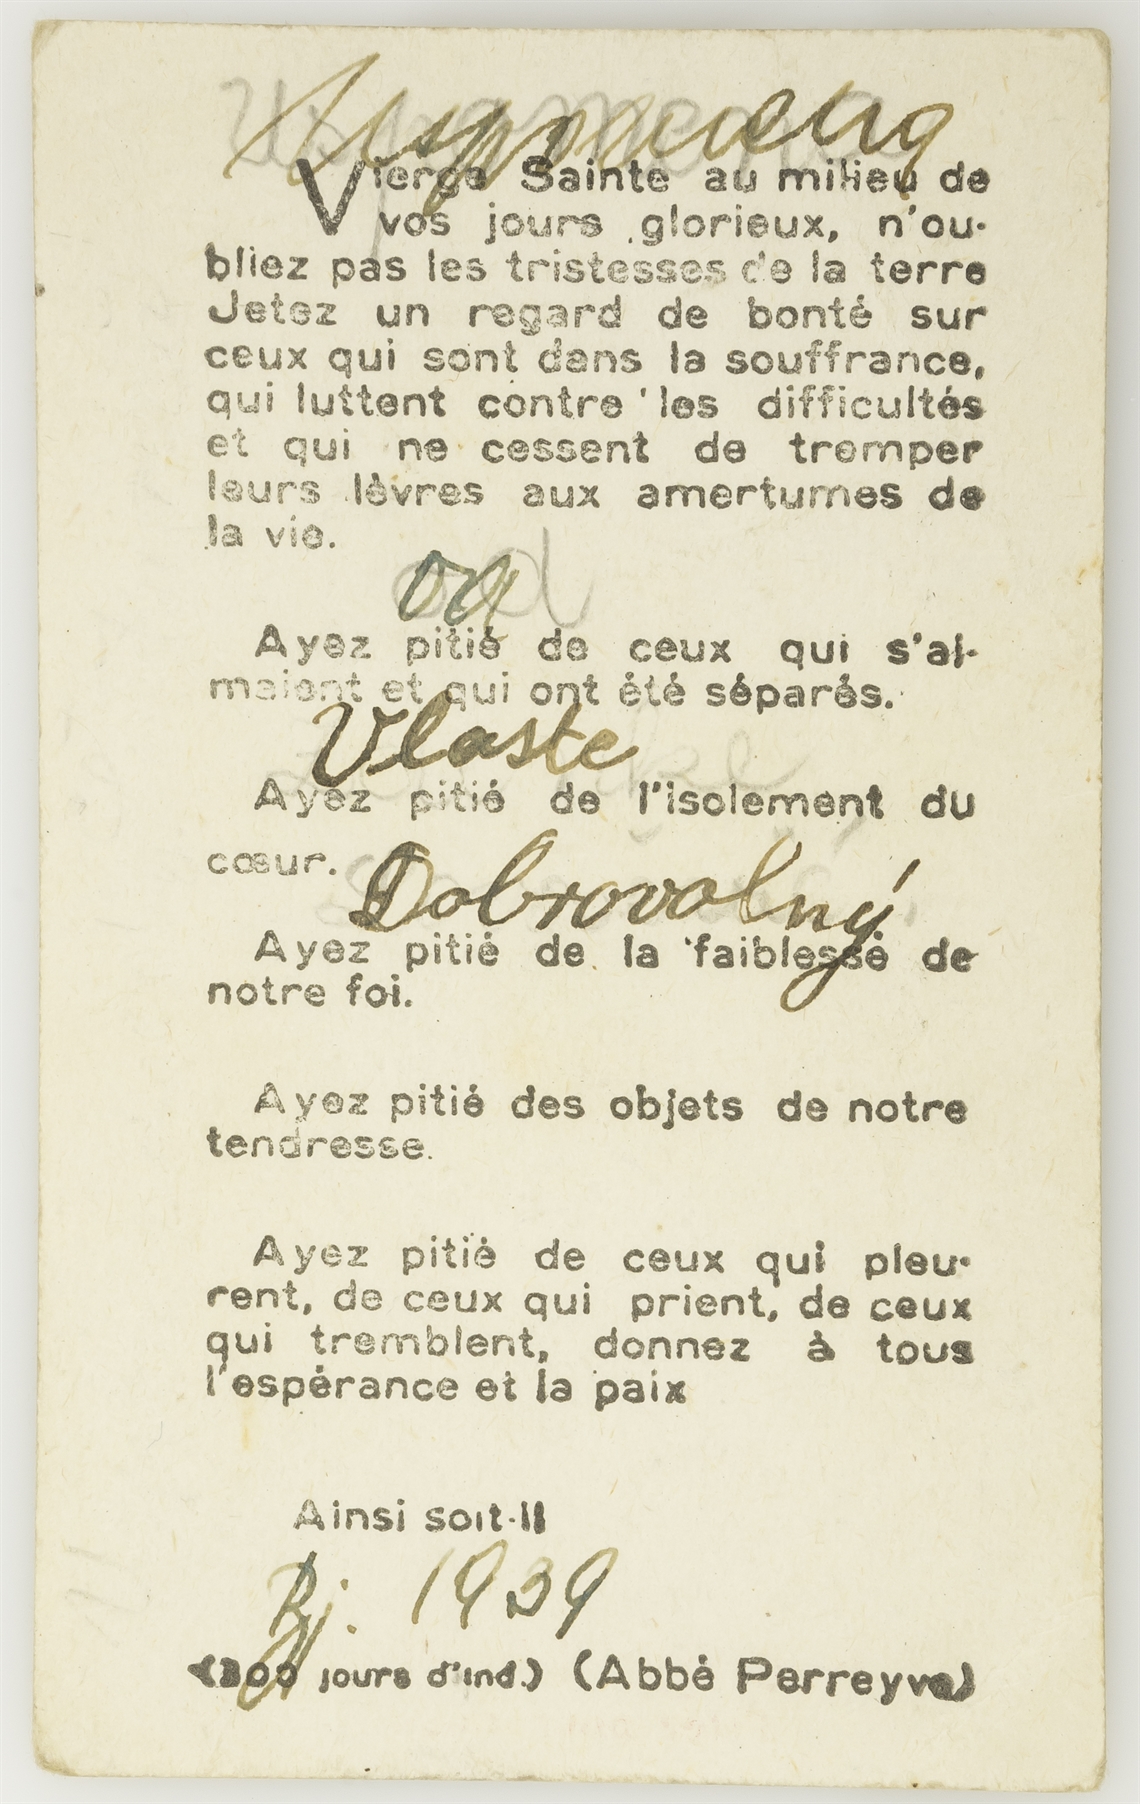 Uspomena
Vierge Sainte au milieu de
vos jours glorieux, n'ou-
bliez pas les tristesses de la terre
Jetez un regard de bonté sur
ceux qui sont dans la souffrance,
qui luttent contre les difficultés
et qui ne cessent de tremper
leurs lèvres aux amertumes de
la vie.
od
Ayez pitié de ceux qui s'ai-
maient et qui ont été séparés.
Vlaste
Ayez pitié de l'isolement du
cœur.
Dobrovolný
Ayez pitié de la faiblesse de
notre foi.
Ayez pitié des objets de notre
tendresse.
Ayez pitié de ceux qui pleu-
rent, de ceux qui prient, de ceux
qui tremblent, donnez à tous
l'espérance et la paix
Ainsi soit-il
Rj. 1939
(300 jours d'ind.) (Abbé Perreyve)